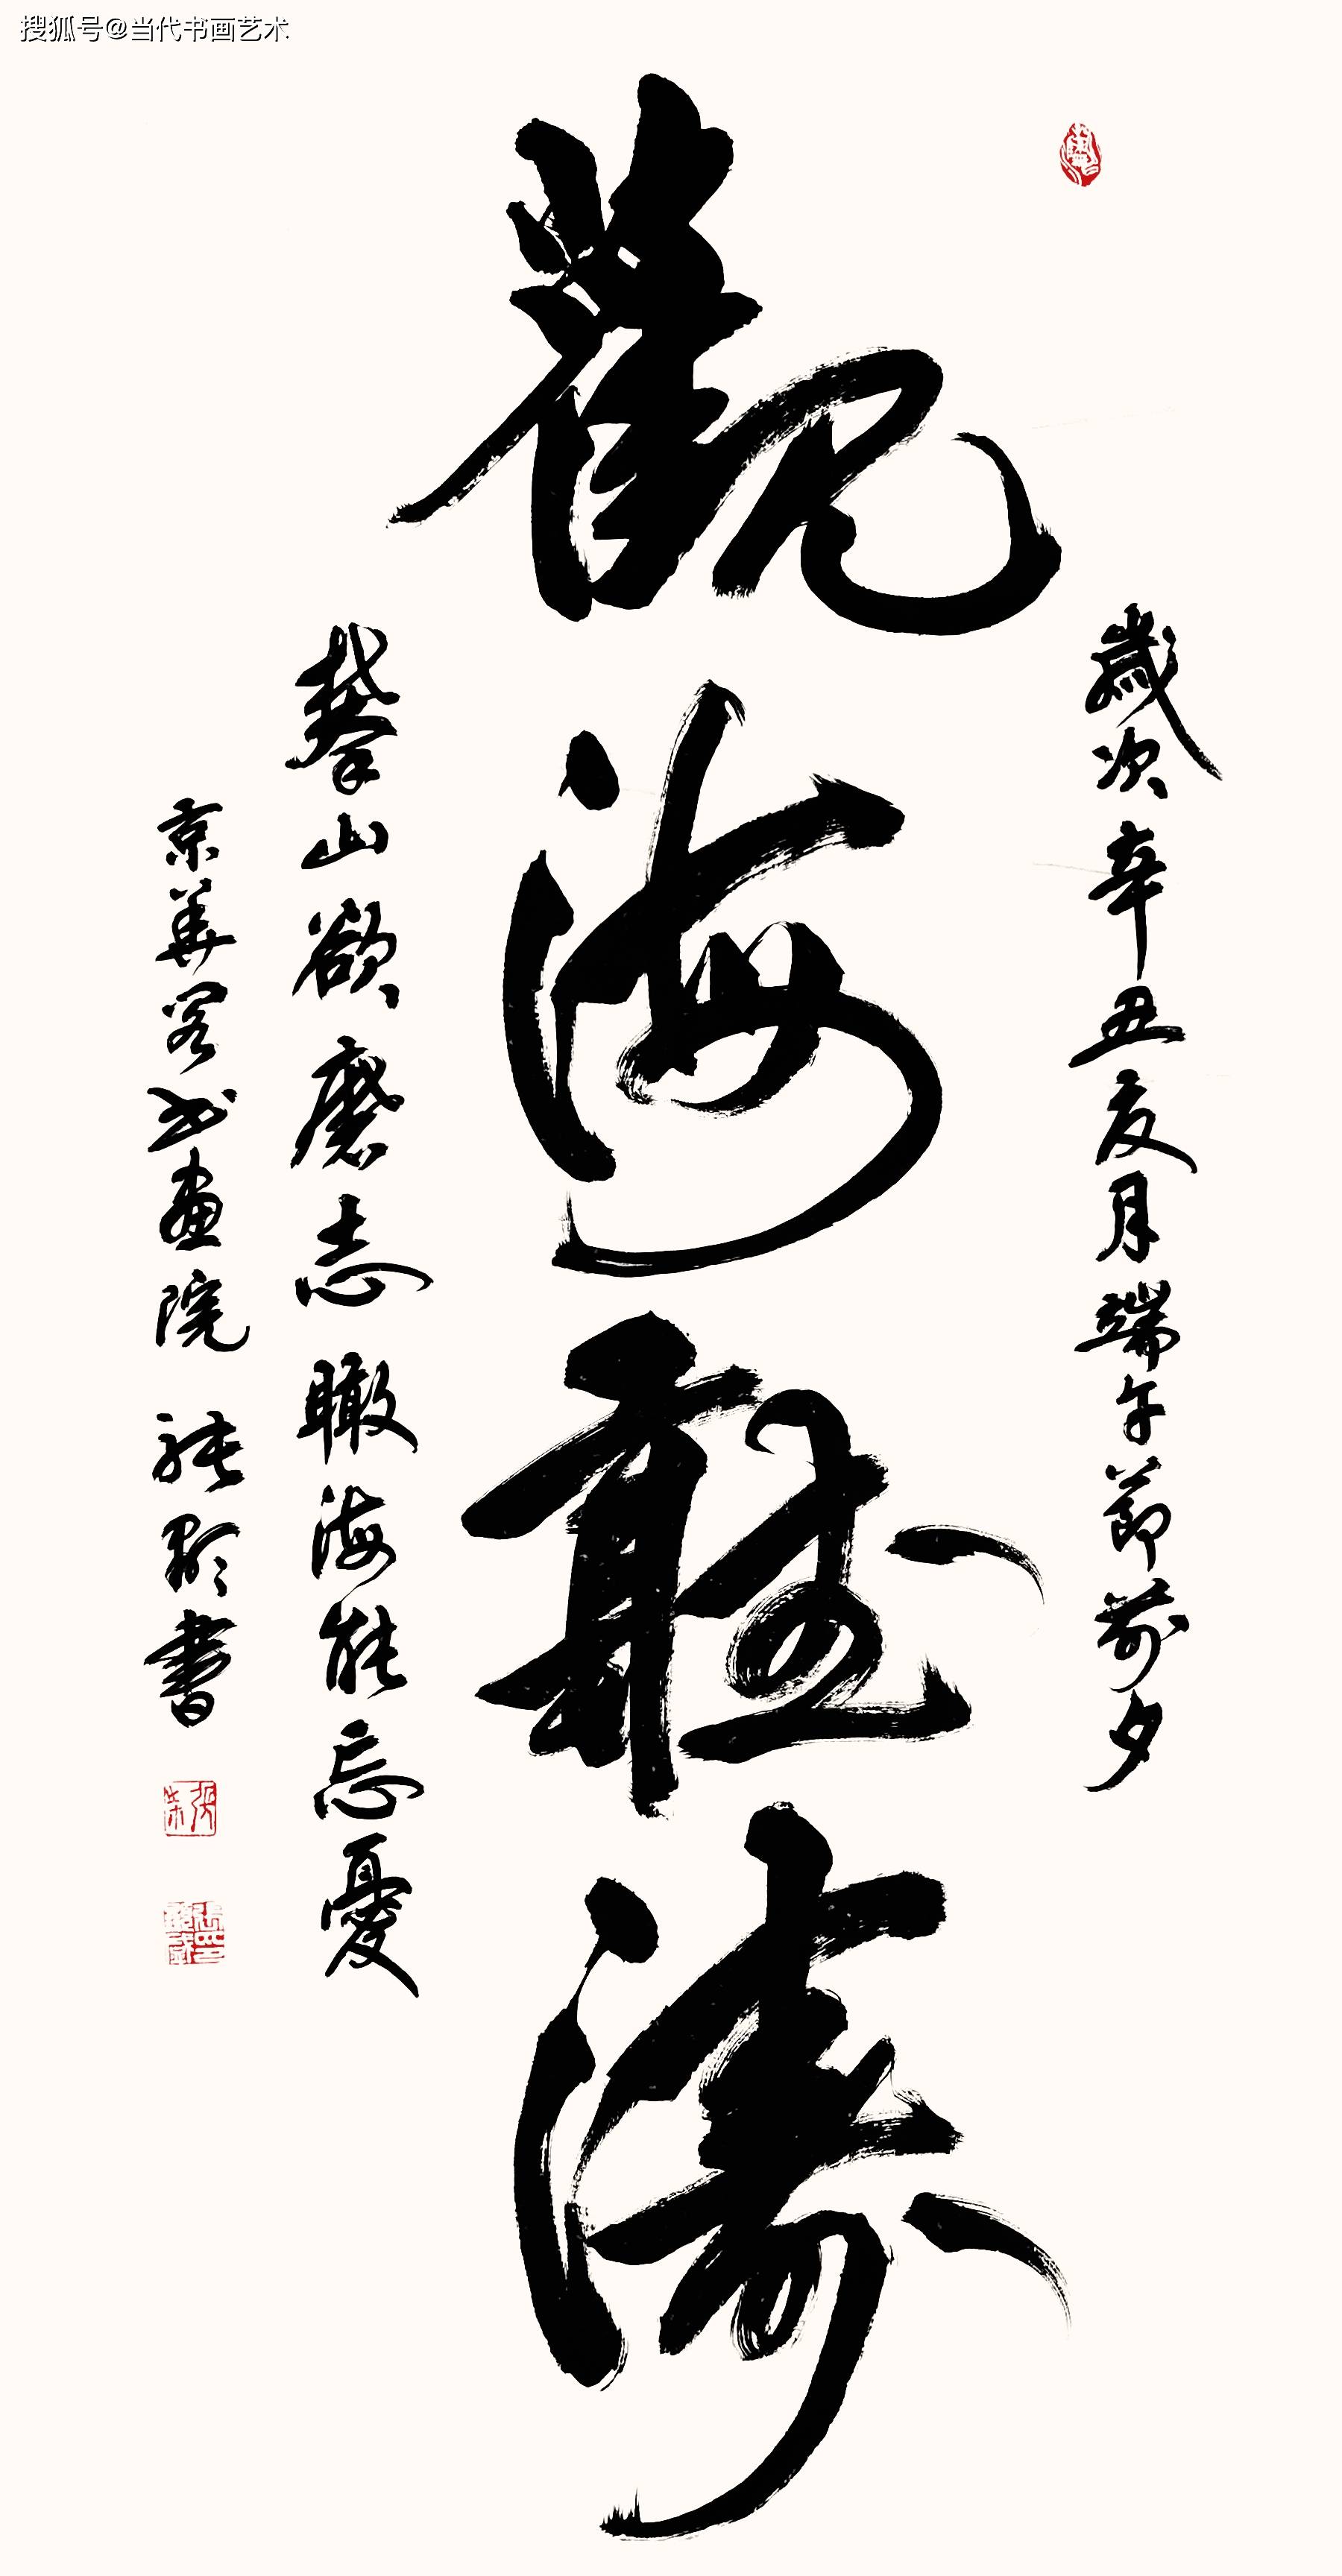 搜狐号@当代书画艺术
歲次辛丑亥月端午節前夕
觀海聽濤
攀山欲磨志瞰海能忘憂
京華客书畫院 張彰書